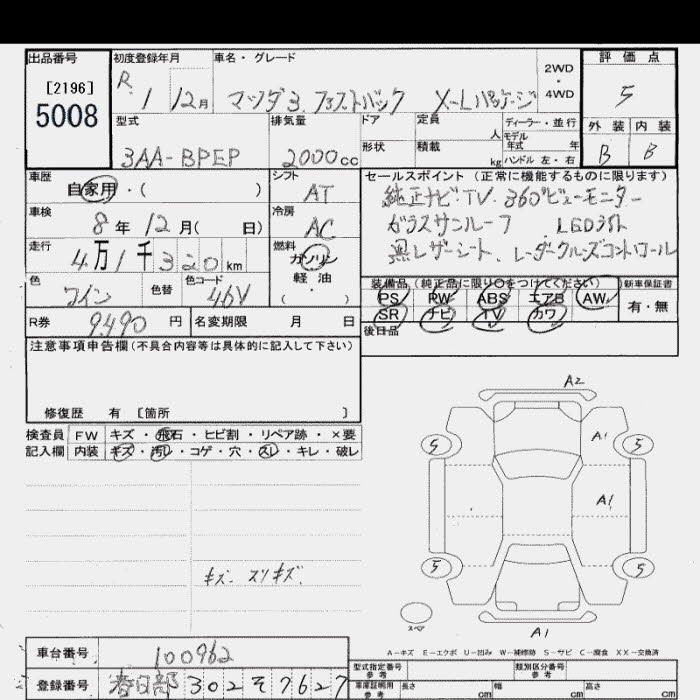 出品番号 初度登録年月 車名・グレード 評価点
[2196] R 1 12月 マツダ3 ファストバック X-Lパッケージ 2WD 4WD 5
5008 型式 排気量 ドア 定員 人 ディーラー・並行 外装 内装
モデル年式 年
3AA-BPEP 2000cc 形状 積載 kg ハンドル 左・右 B B
車歴 シフト セールスポイント(正常に機能するものに限ります)
自家用・( ) AT 純正ナビ・TV 360°ビューモニター
車検 8年12月( 日) 冷房 AC ガラスサンルーフ LEDライト
走行 4万1千320km 燃料 ガソリン 黒レザーシート、レーダークルーズコントロール
軽油
色 ワイン 色替 色コード 46V ( ・ ) 装備品(純正品に限り○をつけてください) 新車保証書
PS PW ABS エアB AW 有・無
R券 9490円 名変期限 月 日 SR ナビ TV カワ
後日品
注意事項申告欄(不具合内容等は具体的に記入して下さい)
修復歴 有 [箇所 ]
検査員 FW キズ・飛石・ヒビ割・リペア跡・×要
記入欄 内装 キズ・汚レ・コゲ・穴・スレ・キレ・破レ
A2
5 A1 5
A1
5 5
キズ、スリキズ、
スペア A1
A-キズ E-エクボ U-凹み W-補修跡 S-サビ C-腐食 XX-交換済
車台番号 100962 型式指定番号 参考 類別区分番号 参考
登録番号 春日部 302 そ 7627 車庫証明用 参考 長さ cm 幅 cm 高さ cm